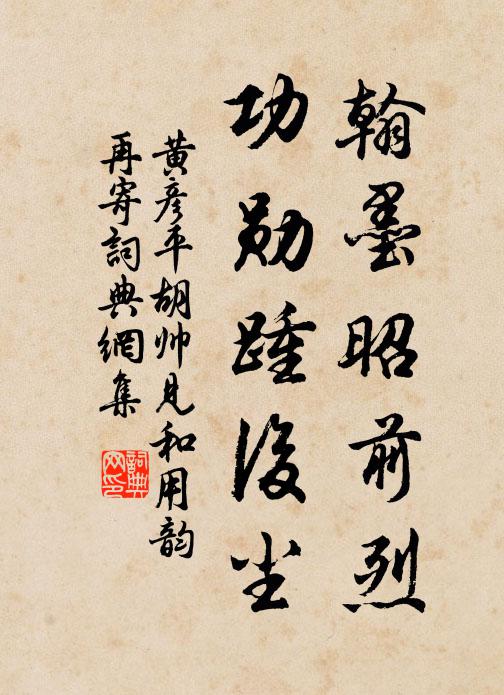 翰墨昭前烈
功勋踵後尘
黄彦平胡帅见和用韵
再寄詞典網集
詞典网印